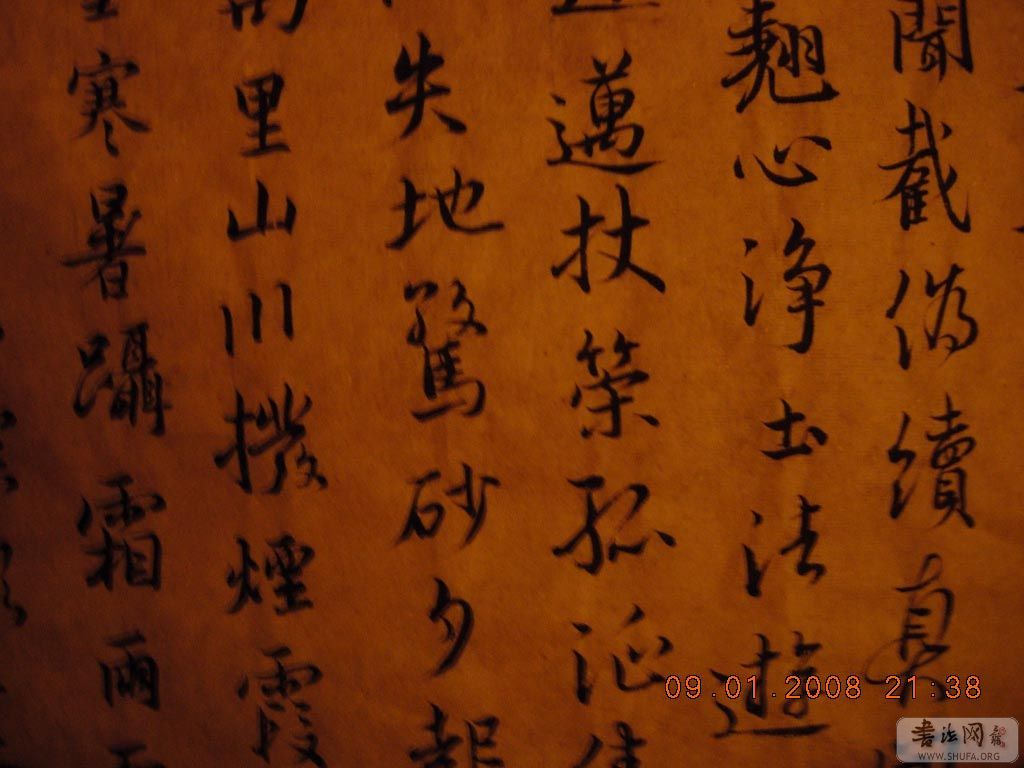 聞截偽續真
翹心淨土法遊
邁杖策孤征
失地驚砂夕起
萬里山川撥煙霞
寒暑躡霜雨
09.01.2008 21:38
书法网
WWW.SHUFA.ORG